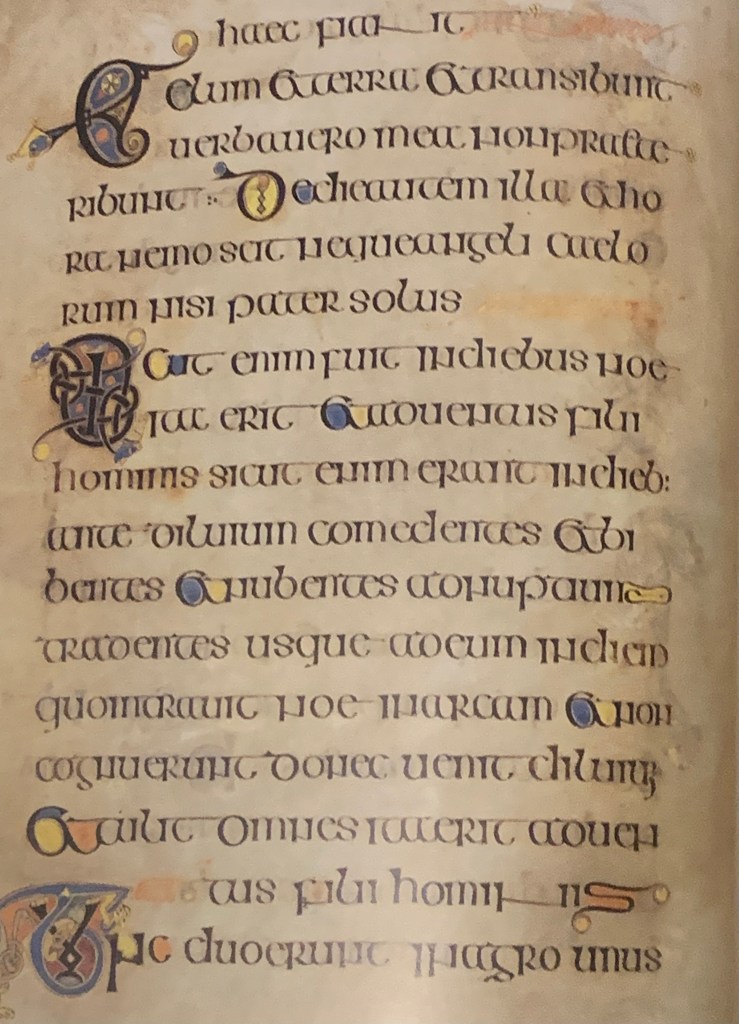 haec fiant
Celum et terra et transibunt
uerba uero mea non praete
ribunt :· De die autem illa et ho
ra nemo scit neque angeli caelo
rum nisi pater solus
Sicut enim fuit in diebus noe
ita erit et aduentus filii
hominis sicut enim erant in dieb:
ante diluuium comedentes et bi
bentes et nubentes ad nuptum
tradentes usque ad eum in diem
quo intrauit noe in arcam et non
cognuerunt donec uenit diluuium
et tulit omnes ita erit aduen
tus filii hominis
Tunc duo erunt in agro unus